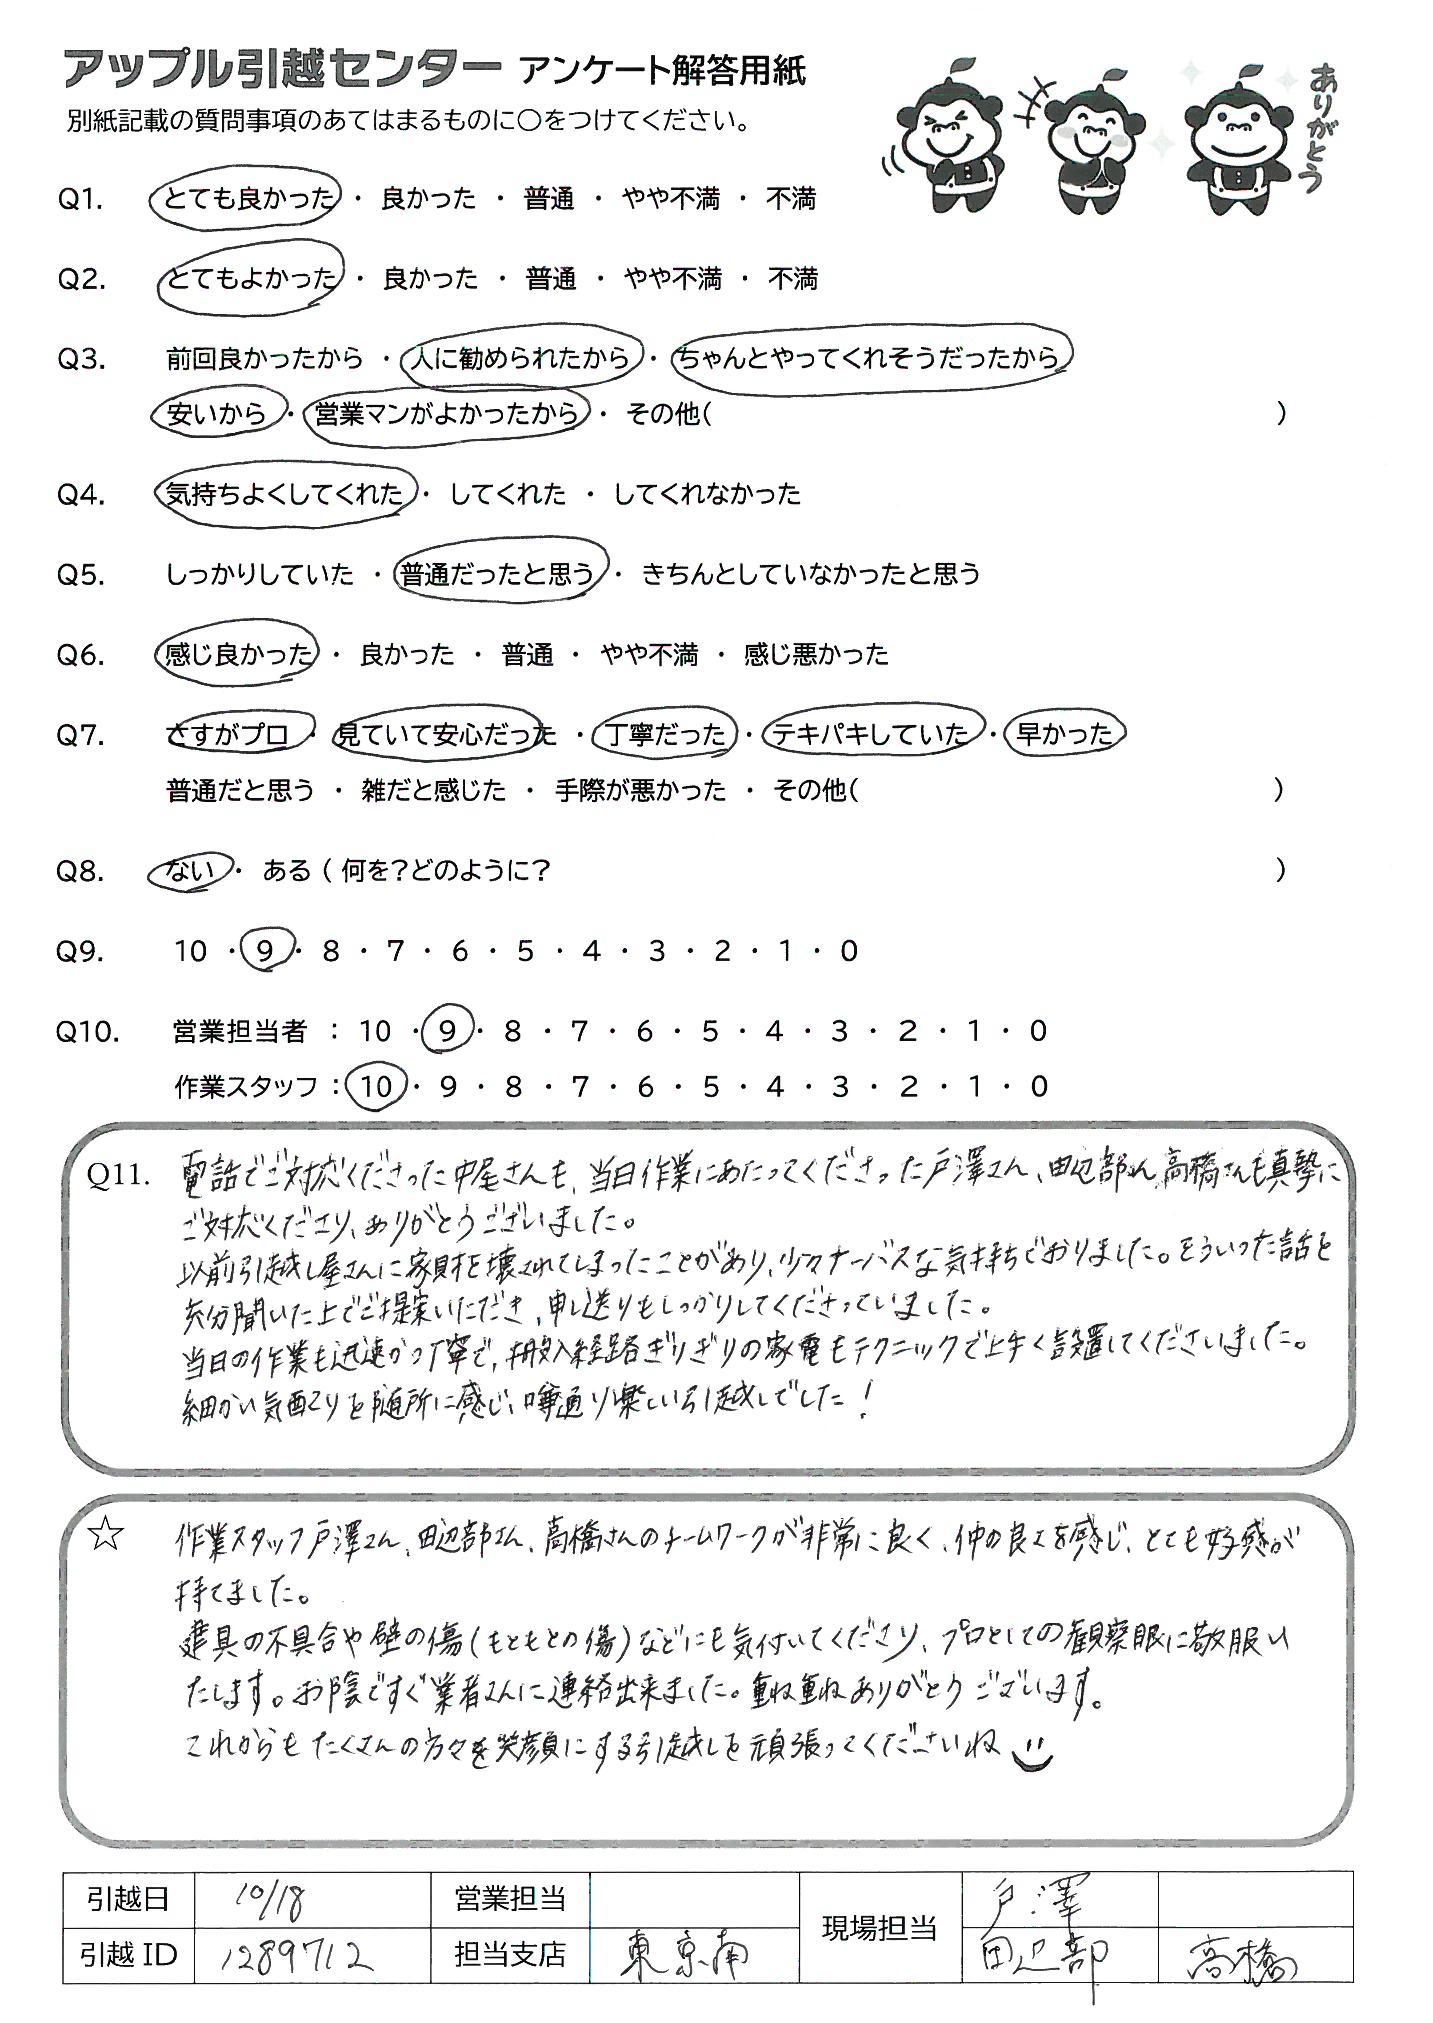 アップル引越センター アンケート解答用紙
別紙記載の質問事項のあてはまるものに○をつけてください。
ありがとう
Q1. とても良かった ・ 良かった ・ 普通 ・ やや不満 ・ 不満
Q2. とてもよかった ・ 良かった ・ 普通 ・ やや不満 ・ 不満
Q3. 前回良かったから ・ 人に勧められたから ・ ちゃんとやってくれそうだったから
安いから ・ 営業マンがよかったから ・ その他( )
Q4. 気持ちよくしてくれた ・ してくれた ・ してくれなかった
Q5. しっかりしていた ・ 普通だったと思う ・ きちんとしていなかったと思う
Q6. 感じ良かった ・ 良かった ・ 普通 ・ やや不満 ・ 感じ悪かった
Q7. さすがプロ ・ 見ていて安心だった ・ 丁寧だった ・ テキパキしていた ・ 早かった
普通だと思う ・ 雑だと感じた ・ 手際が悪かった ・ その他( )
Q8. ない ・ ある ( 何を?どのように? )
Q9. 10 ・ 9 ・ 8 ・ 7 ・ 6 ・ 5 ・ 4 ・ 3 ・ 2 ・ 1 ・ 0
Q10. 営業担当者 : 10 ・ 9 ・ 8 ・ 7 ・ 6 ・ 5 ・ 4 ・ 3 ・ 2 ・ 1 ・ 0
作業スタッフ : 10 ・ 9 ・ 8 ・ 7 ・ 6 ・ 5 ・ 4 ・ 3 ・ 2 ・ 1 ・ 0
Q11. 電話でご対応くださった中尾さんも、当日作業にあたってくださった戸澤さん、田辺部さん、高橋さんも真摯に
ご対応くださり、ありがとうございました。
以前引越し屋さんに家財を壊されてしまったことがあり、少々ナーバスな気持ちでおりました。そういった話を
充分聞いた上でご提案いただき、申し送りもしっかりしてくださっていました。
当日の作業も迅速かつ丁寧で、搬入経路ぎりぎりの家電もテクニックで上手く設置してくださいました。
細かい気配りを随所に感じ、噂通り楽しい引越しでした!
☆ 作業スタッフ戸澤さん、田辺部さん、高橋さんのチームワークが非常に良く、仲の良さを感じ、とても好感が
持てました。
建具の不具合や壁の傷(もともとの傷)などにも気付いてくださり、プロとしての観察眼に敬服い
たします。お陰ですぐ業者さんに連絡出来ました。重ね重ねありがとうございます。
これからもたくさんの方々を笑顔にする引越しを頑張ってくださいね
引越日 10/18 営業担当 現場担当 戸澤
引越ID 1289712 担当支店 東京南 田辺部 高橋